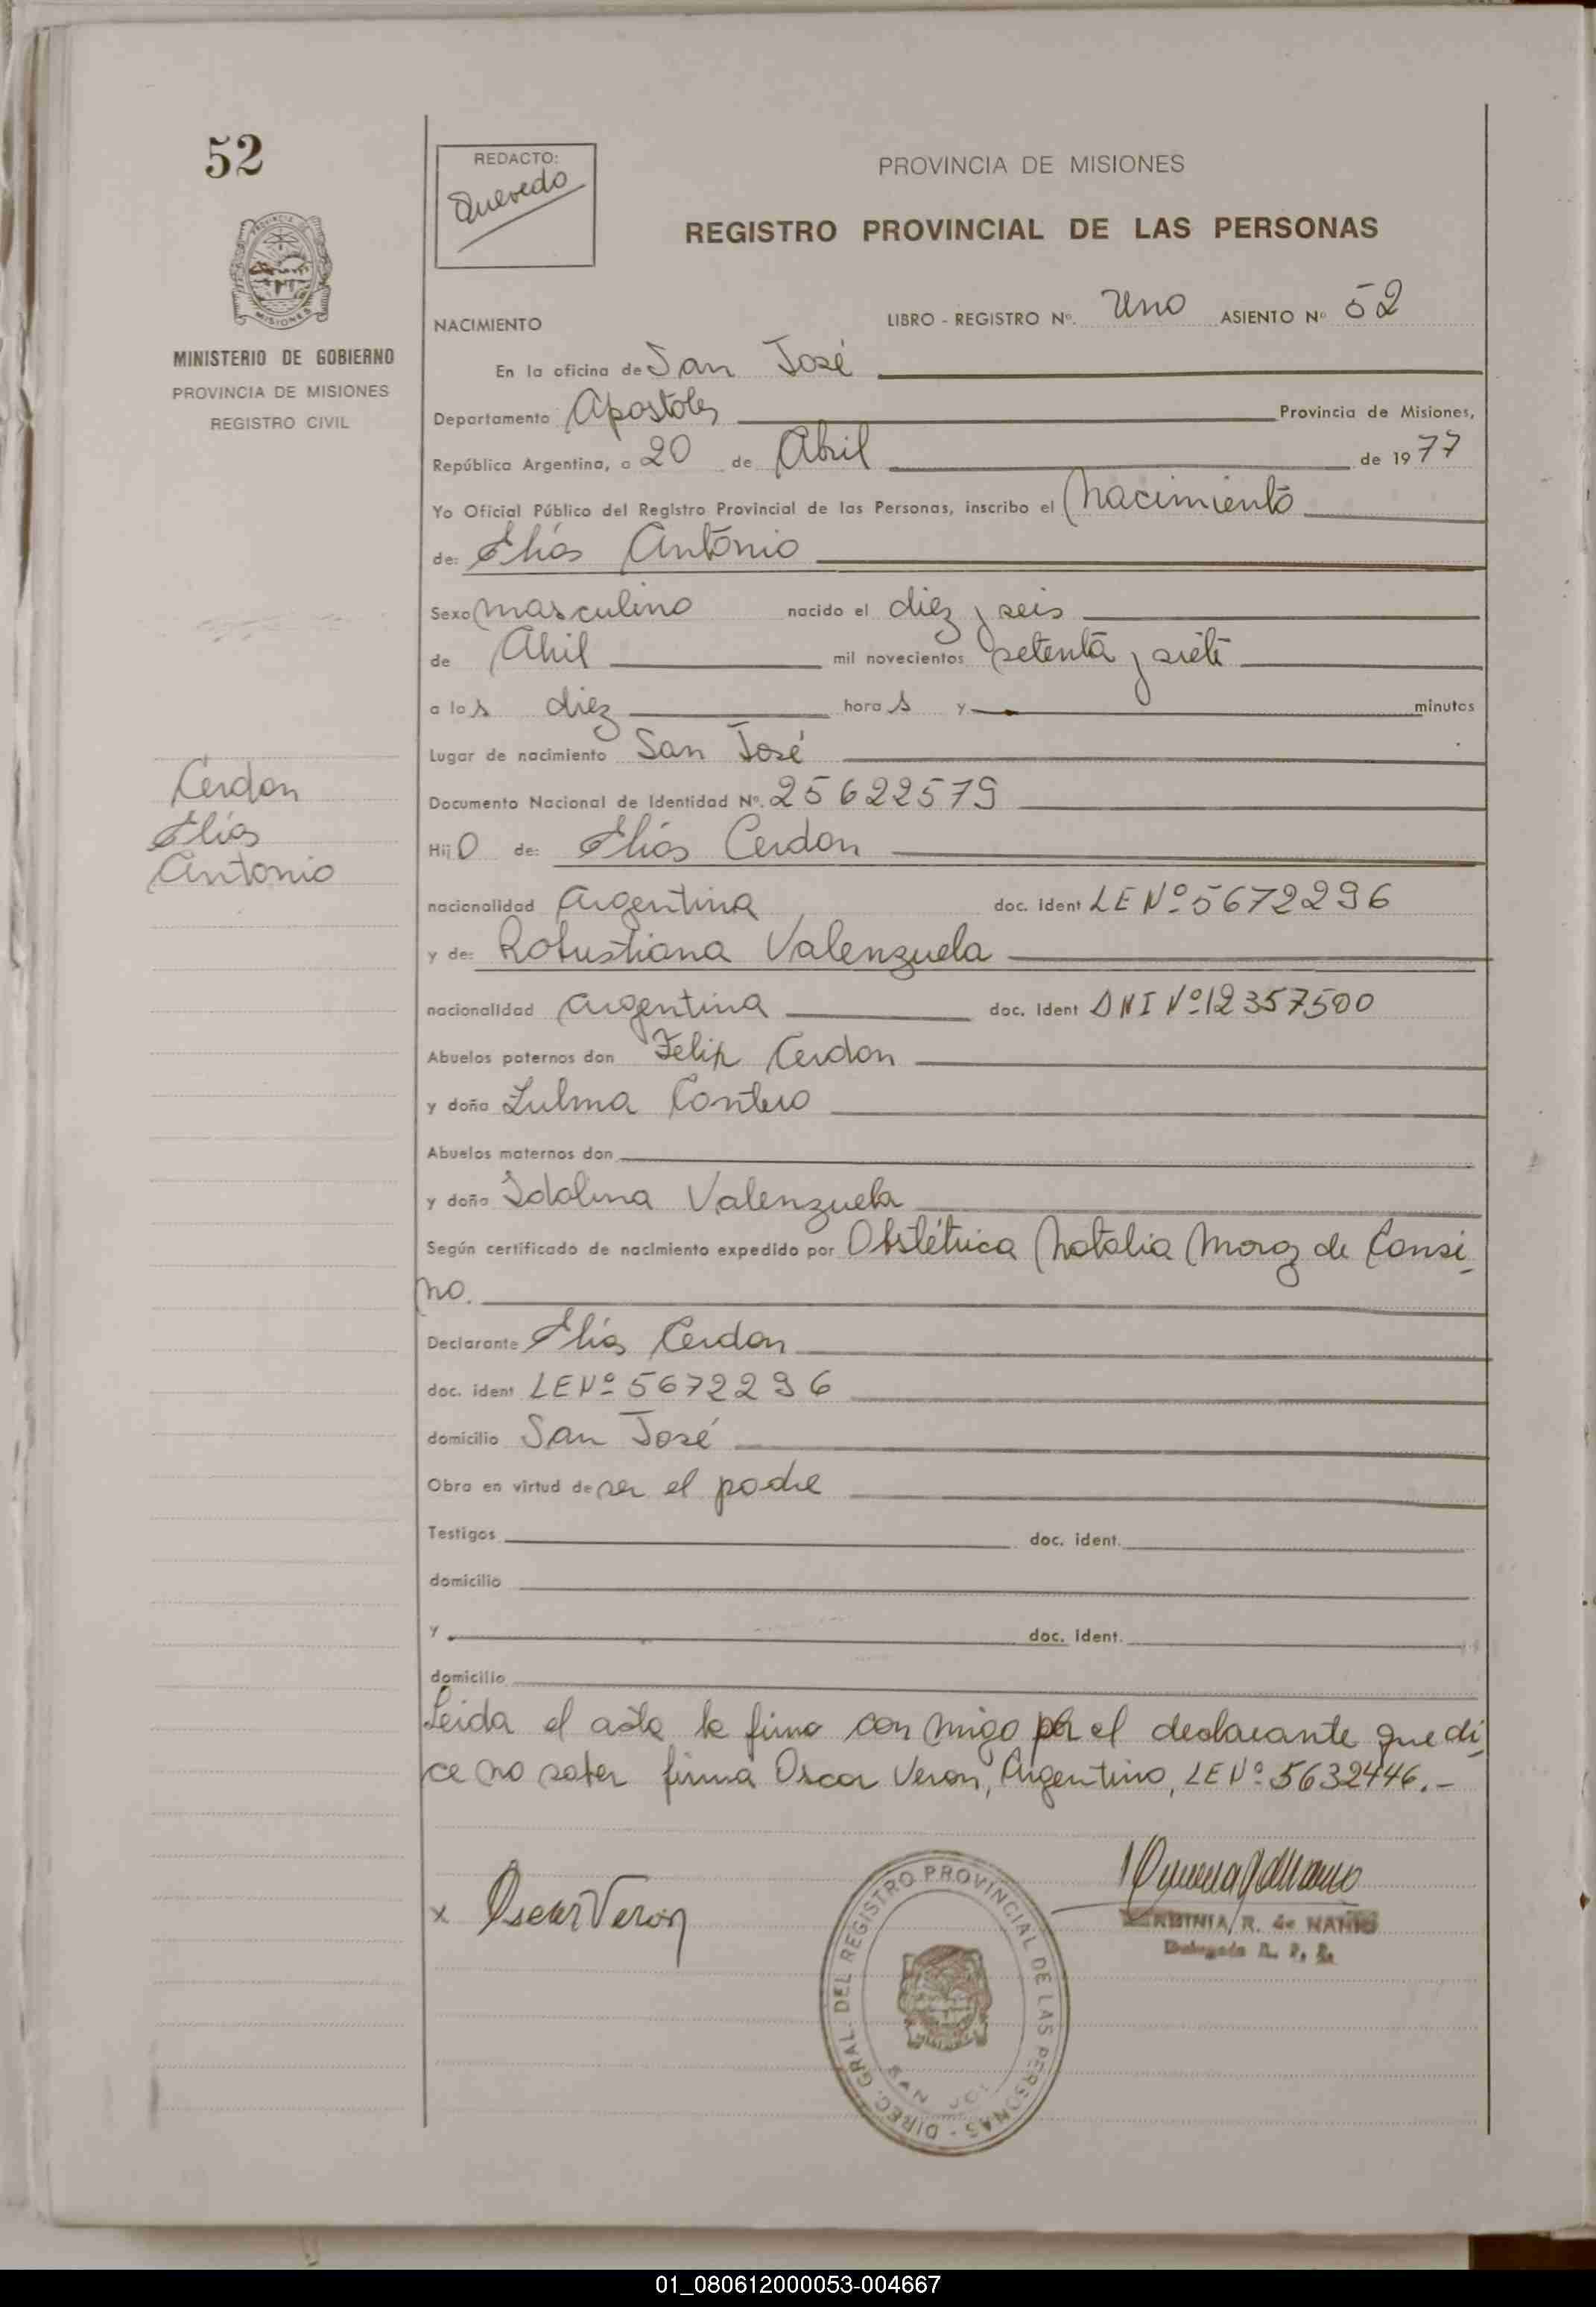 52
REDACTO:
Quevedo
PROVINCIA DE MISIONES
REGISTRO PROVINCIAL DE LAS PERSONAS
MISIONES
MINISTERIO DE GOBIERNO
PROVINCIA DE MISIONES
REGISTRO CIVIL
NACIMIENTO
LIBRO - REGISTRO Nº. Uno ASIENTO Nº 52
En la oficina de San José
Departamento Apostoles Provincia de Misiones,
República Argentina, a 20 de Abril de 1977
Yo Oficial Público del Registro Provincial de las Personas, inscribo el Nacimiento
de: Elías Antonio
Sexo masculino nacido el diez y seis
de Abril mil novecientos setenta y siete
a las diez horas y minutos
Lugar de nacimiento San José
Documento Nacional de Identidad Nº. 25622579
Cerdon
Elías
Antonio
Hijo de: Elías Cerdon
nacionalidad Argentina doc. ident LE Nº 5672296
y de: Robustiana Valenzuela
nacionalidad Argentina doc. Ident DNI Nº 12357500
Abuelos paternos don Felix Cerdon
y doña Zulma
Abuelos maternos don
y doña Idalina Valenzuela
Según certificado de nacimiento expedido por Obstétrica Natalia Moroz de Cansi-
no.
Declarante Elías Cerdon
doc. ident LE Nº 5672296
domicilio San José
Obra en virtud de ser el padre
Testigos doc. ident.
domicilio
y doc. Ident.
domicilio
Leida el acta la firma con migo por el declarante que di-
ce no saber firmar Oscar Veron, Argentino, LE Nº 5632446.-
x Oscar Veron
R. de
DIREC. GRAL. DEL REGISTRO PROVINCIAL DE LAS PERSONAS -
SAN
01_080612000053-004667